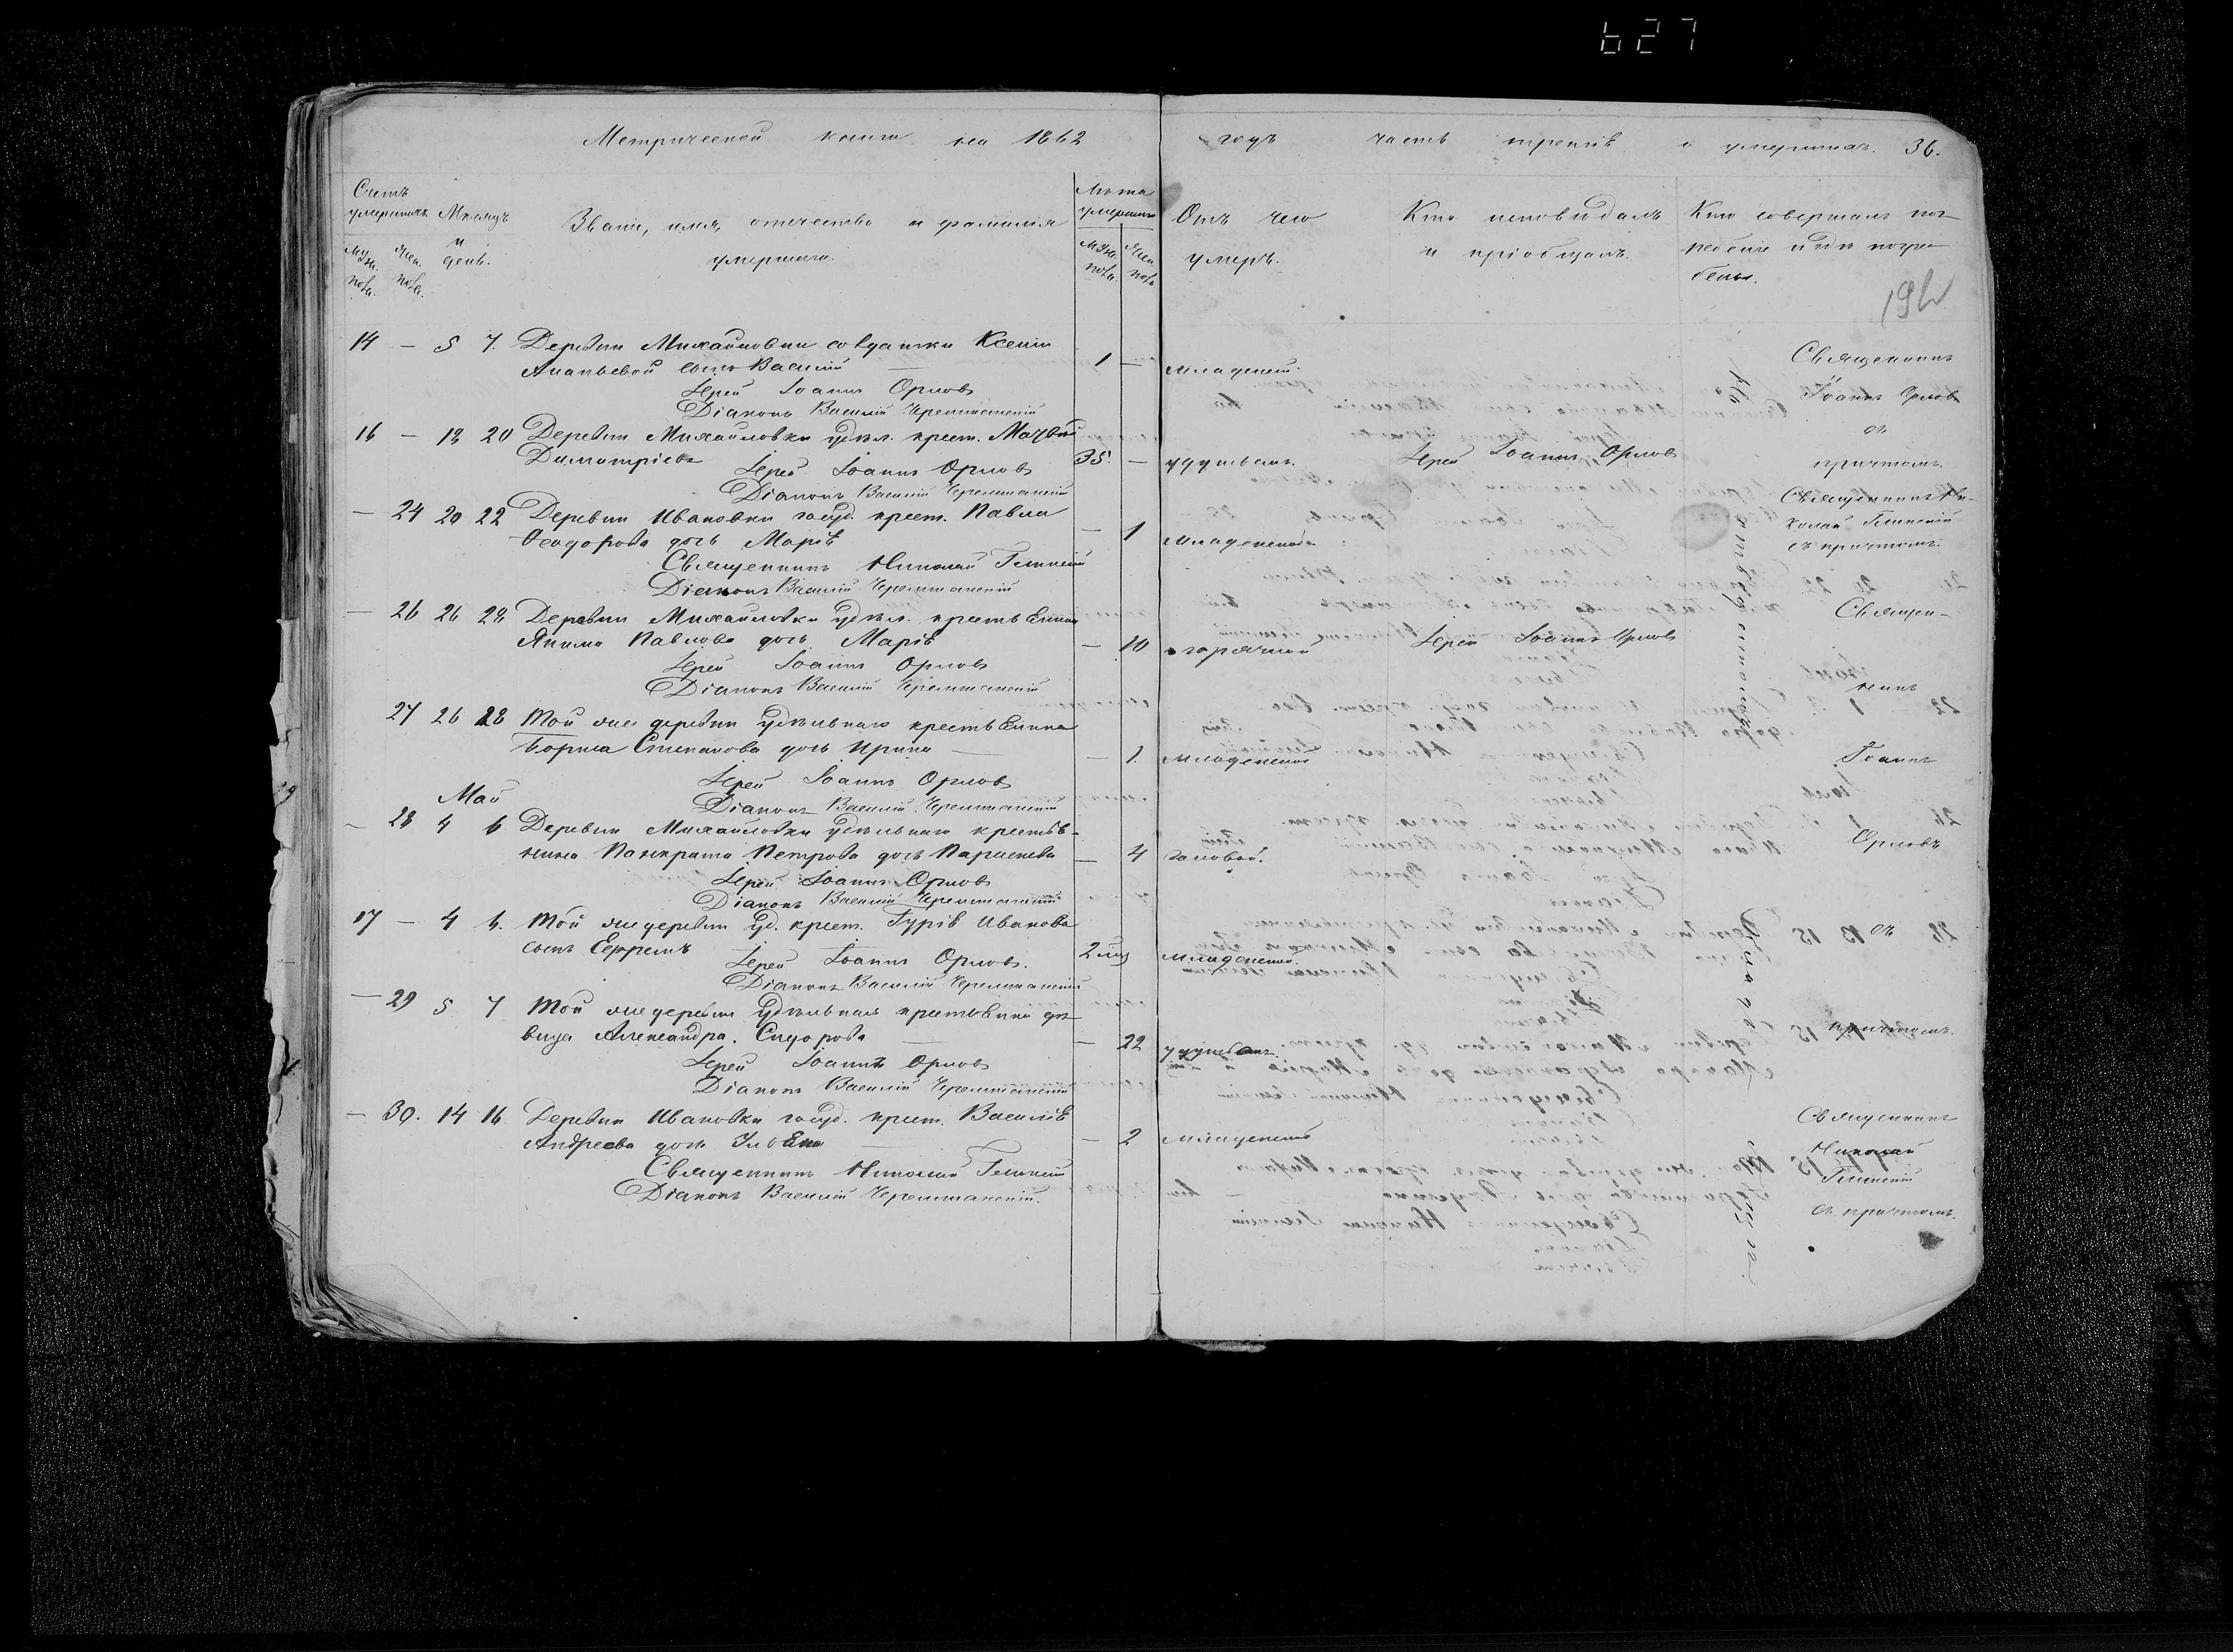 627
Метрической книги на 1862 годъ часть третія о умершихъ. 36.
Счетъ умершихъ
Мужс. пола. Жен. пола.
Мѣсяцъ и день.
Званіе, имя, отчество и фамилія умершаго.
Лѣта умершаго
Муж. пола. Жен. пола
Отъ чего умеръ.
Кто исповѣдалъ и пріобщалъ.
Кто совершалъ погребеніе и гдѣ погребены.
14 — 5 7. Деревни Михайловки солдатки Ксеніи
Ананьевой сынъ Василій — 1 — младенч.
Іерей Іоаннъ Орловъ
Діаконъ Василій Черемшанскій
Священникъ
Іоаннъ Орловъ
съ
причтомъ.
16 — 18 20 Деревни Михайловки удѣл. крест. Матвѣй
Димитріевъ 35. — удушьемъ. Іерей Іоаннъ Орловъ
Іерей Іоаннъ Орловъ
Діаконъ Василій Черемшанскій
— 24 20 22 Деревни Ивановки госуд. крест. Павла
Ѳеодорова дочь Марія — 1 младенческой
Священникъ Николай
Діаконъ Василій Черемшанскій
Священникъ Ни-
колай
съ причтомъ.
— 26 26 28 Деревни Михайловки удѣл. крестьянина
Якима Павлова дочь Марія — 10 горячкой Іерей Іоаннъ Орловъ
Іерей Іоаннъ Орловъ
Діаконъ Василій Черемшанскій
Священ-
никъ
Іоаннъ
Орловъ
съ
причтомъ.
27 26 28 Той же деревни удѣльнаго крестьянина
Бориса Степанова дочь Ирина — — 1. младенческой
Іерей Іоаннъ Орловъ
Діаконъ Василій Черемшанскій
Май
— 28 4 6 Деревни Михайловки удѣльнаго крестья-
нина Панкрата Петрова дочь Параскева — 4 головой.
Іерей Іоаннъ Орловъ
Діаконъ Василій Черемшанскій
17 — 4 6. Той же деревни уд. крест. Гурія Иванова
сынъ Ефремъ 2 младенческой.
Іерей Іоаннъ Орловъ.
Діаконъ Василій Черемшанскій
— 29 5 7 Той же деревни удѣльная крестьянка дѣ-
вица Александра Сидорова — — 22 удушьемъ.
Іерей Іоаннъ Орловъ
Діаконъ Василій Черемшанскій
— 30. 14 16 Деревни Ивановки госуд. крест. Василія
Андреева дочь — 2 младенческой
Священникъ Николай
Діаконъ Василій Черемшанскій.
Священникъ
Николай
съ причтомъ.